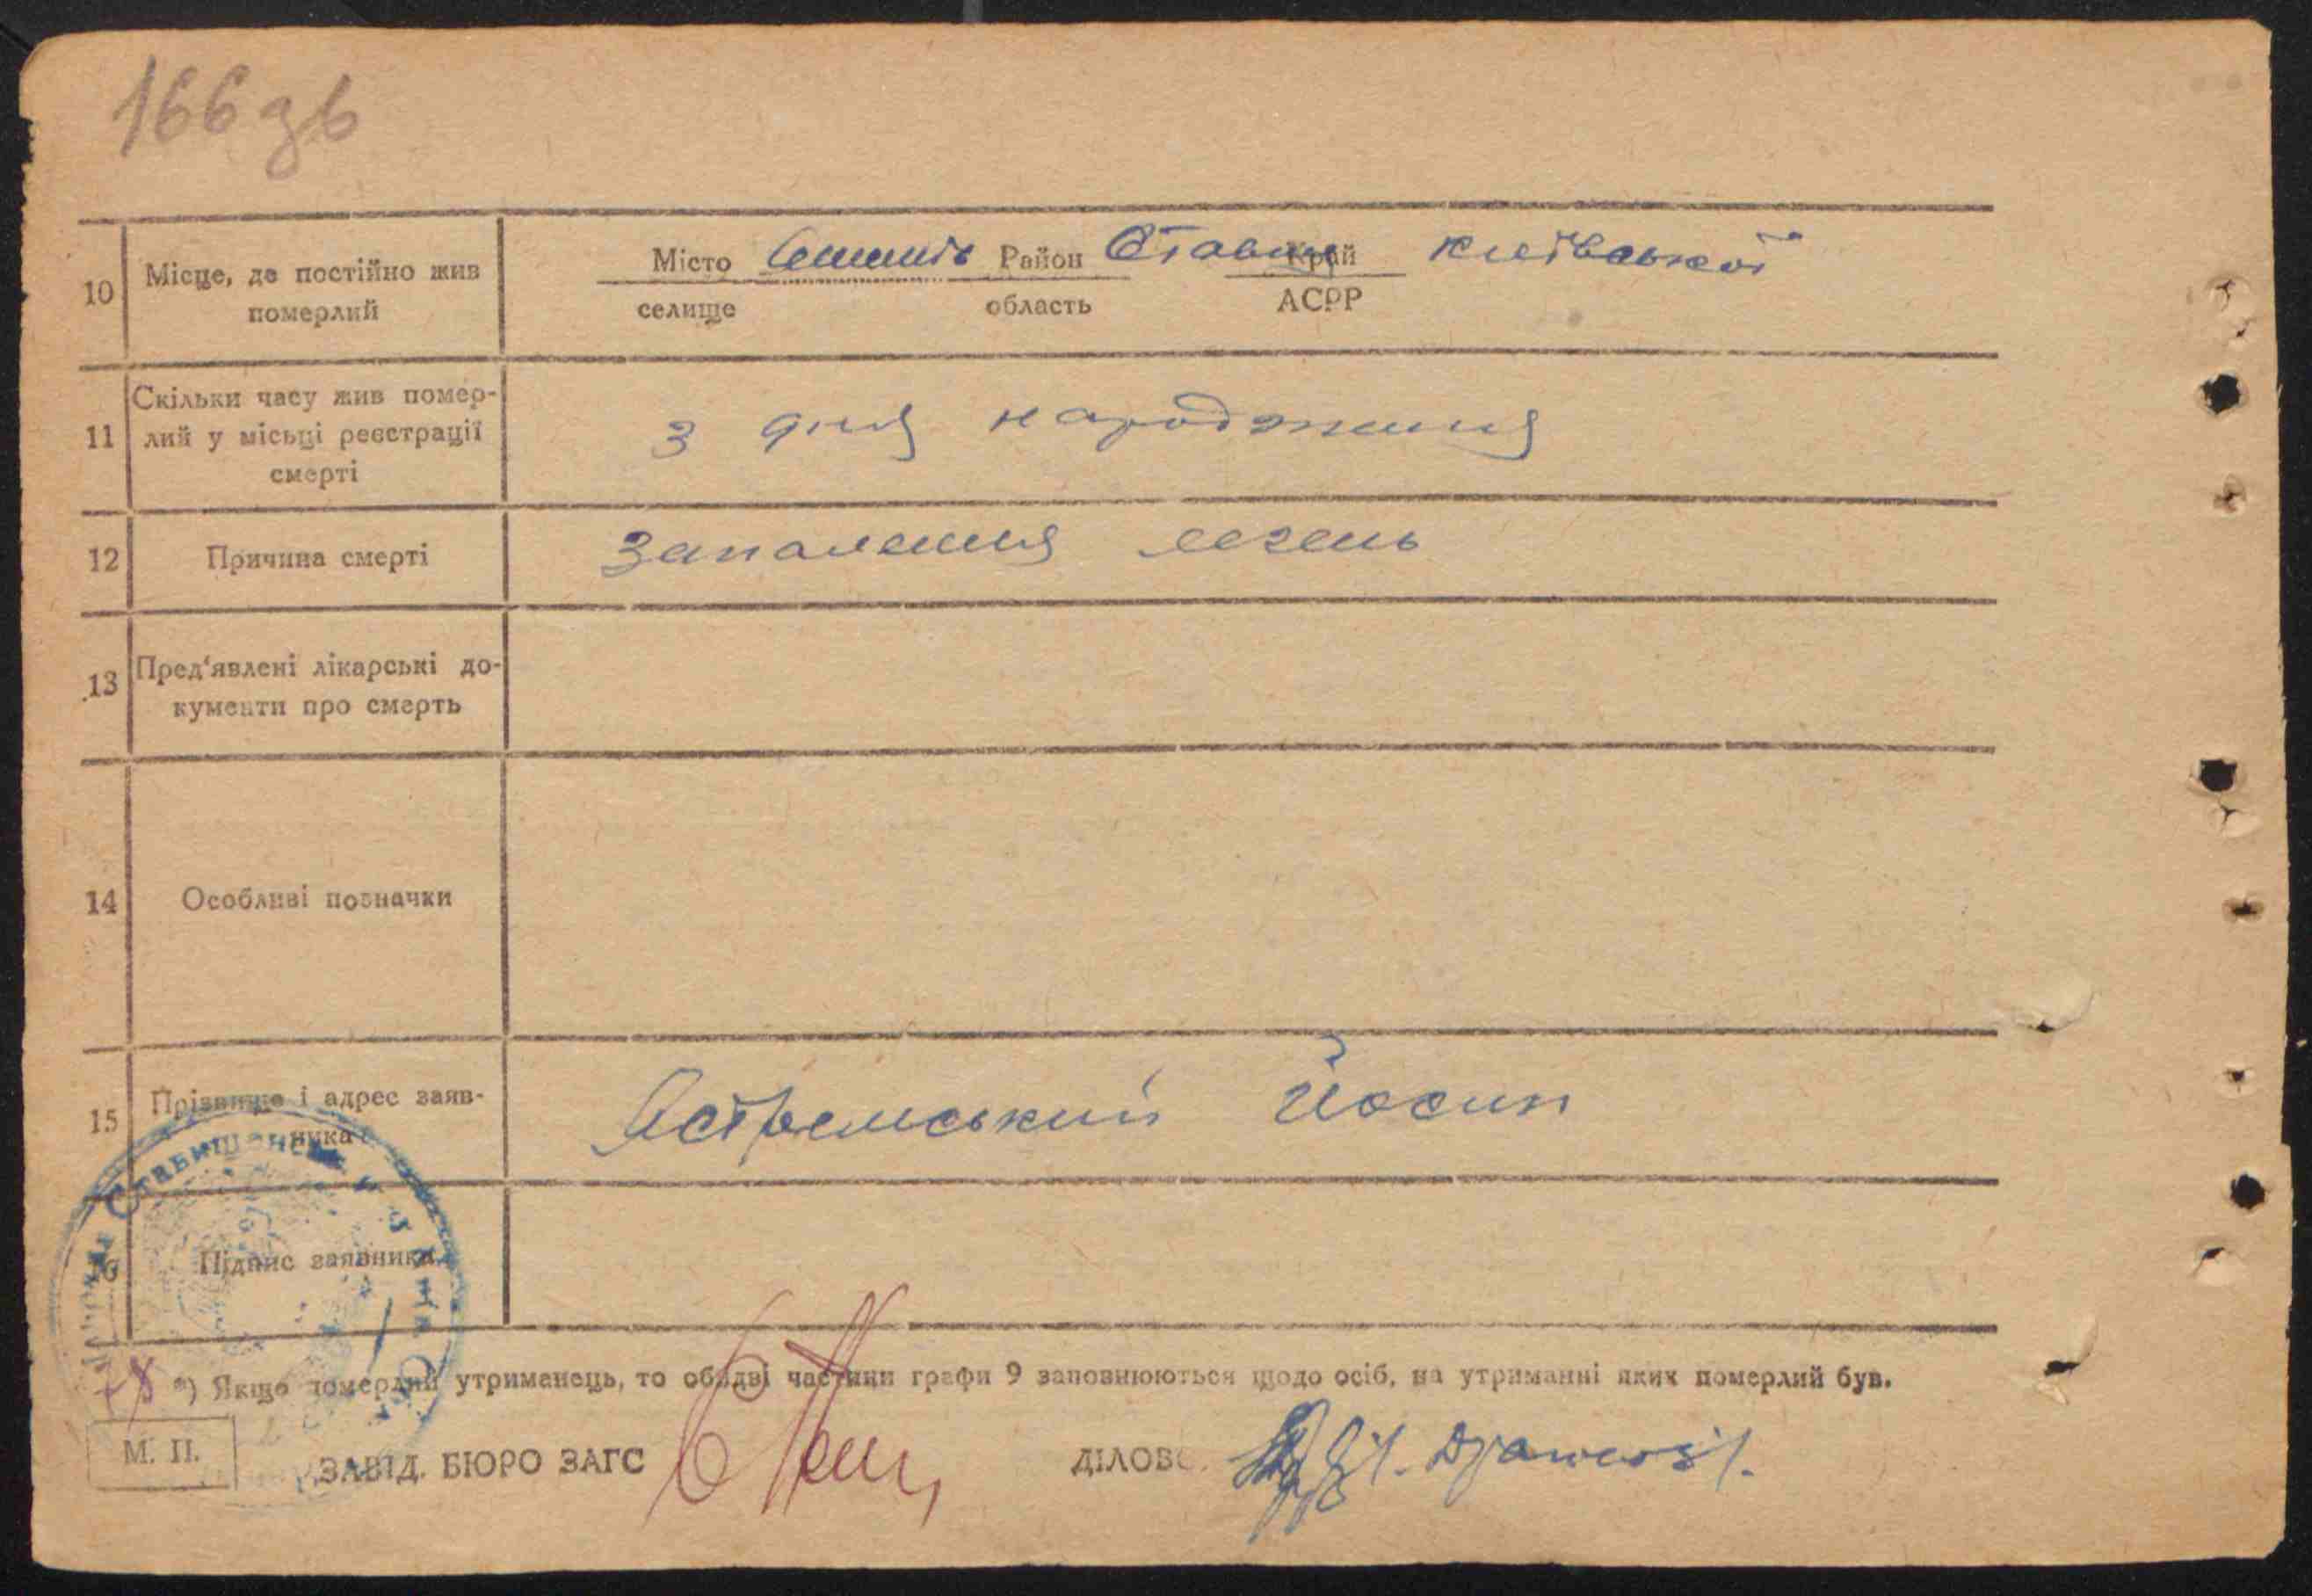 166 зв
10 Місце, де постійно жив померлий
Місто Район Ставищ Край Київської
селище область АСРР
11 Скільки часу жив помер-
лий у місьці реєстрації
смерті
З дня народження
12 Причина смерті Запалення легень
13 Пред'явлені лікарські до-
кументи про смерть
14 Особливі позначки
15 Прізвище і адрес заяв-
ника
Ястремський Йосип
16 Підпис заявника
*) Якщо померлий утриманець, то обидві частини графи 9 заповнюються щодо осіб, на утриманні яких померлий був.
М. П. ЗАВІД. БЮРО ЗАГС ДІЛОВ